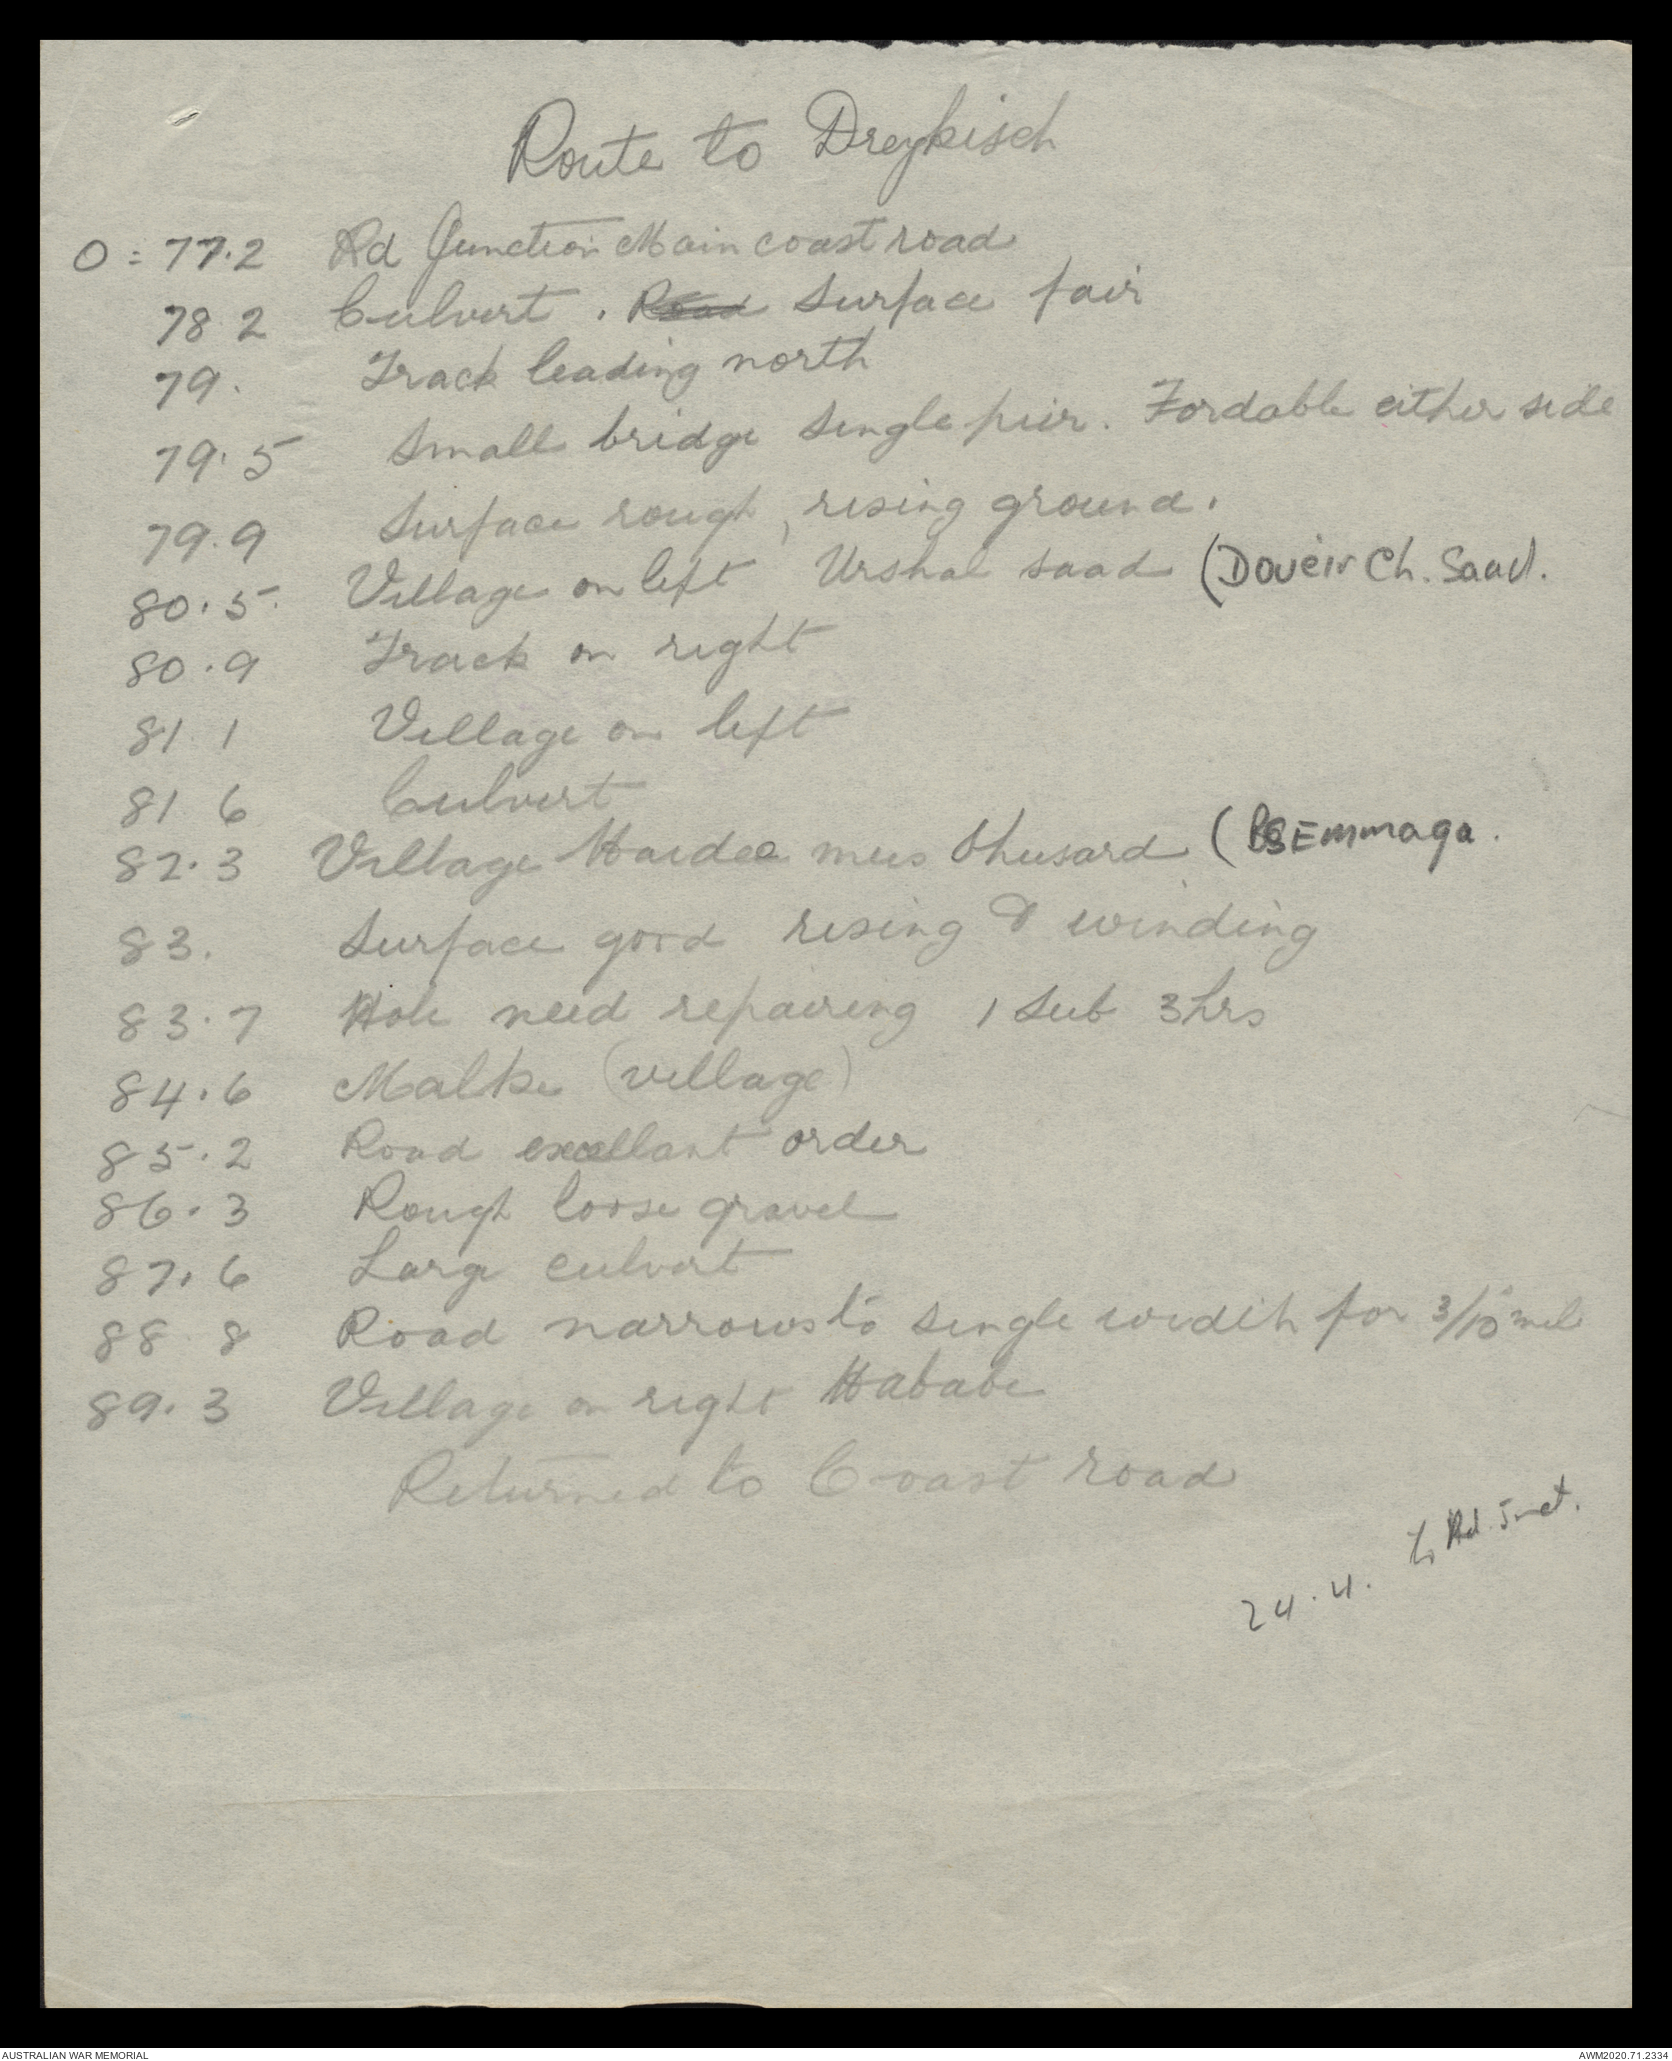 Route to Dreykisch
0 = 77.2 Rd Junction Main coast road
78 2 Culvert . Road Surface fair
79. Track leading north
79.5 Small bridge single pier. Fordable either side
79.9 Surface rough, rising ground.
80.5. Village on left Urshal saad (Doueir Ch. Saad.
80.9 Track on right
81 1 Village on left
81 6 Culvert
82.3 Village Haidee mus (BSEmmaga.
83. Surface good rising & winding
83.7 Hole need repairing 1 Sub 3 hrs
84.6 Malke (village)
85.2 Road excellant order
86.3 Rough loose gravel
87.6 Large culvert
88 8 Road narrows to single width for 3/10 mile
89.3 Village on right Hababe
Returned to Coast road
24.4. to Rd. Junct.
AUSTRALIAN WAR MEMORIAL
AWM2020.71.2334